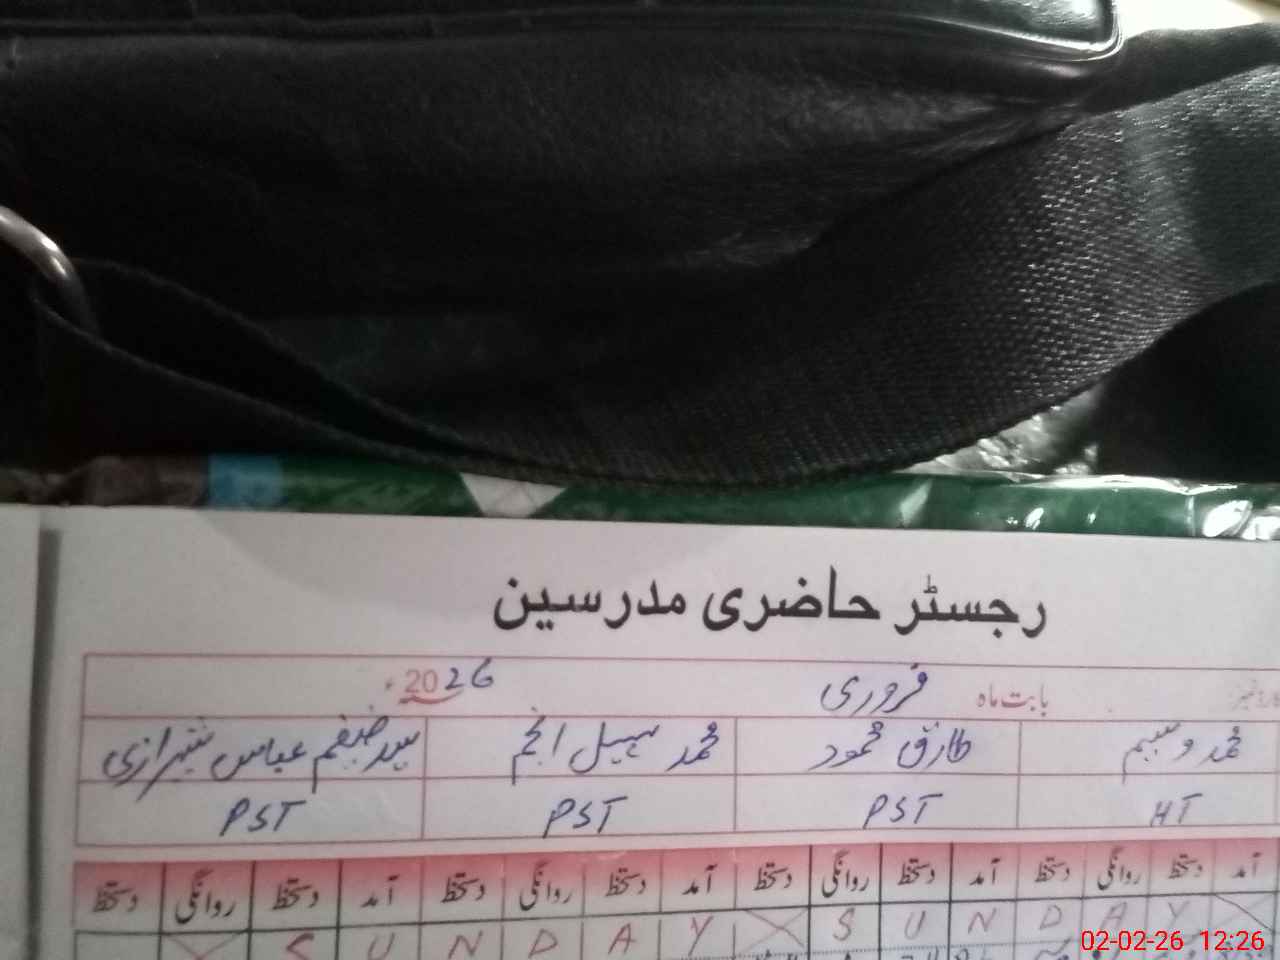 رجسٹر حاضری مدرسین
بابت ماہ فروری 2026ء
محمد وسیم طارق محمود محمد سہیل انجم سید ضیغم عباس شیرازی
HT PST PST PST
آمد دستخط روانگی دستخط آمد دستخط روانگی دستخط آمد دستخط روانگی دستخط آمد دستخط روانگی دستخط
S U N D A Y S U N D A Y
02-02-26 12:26